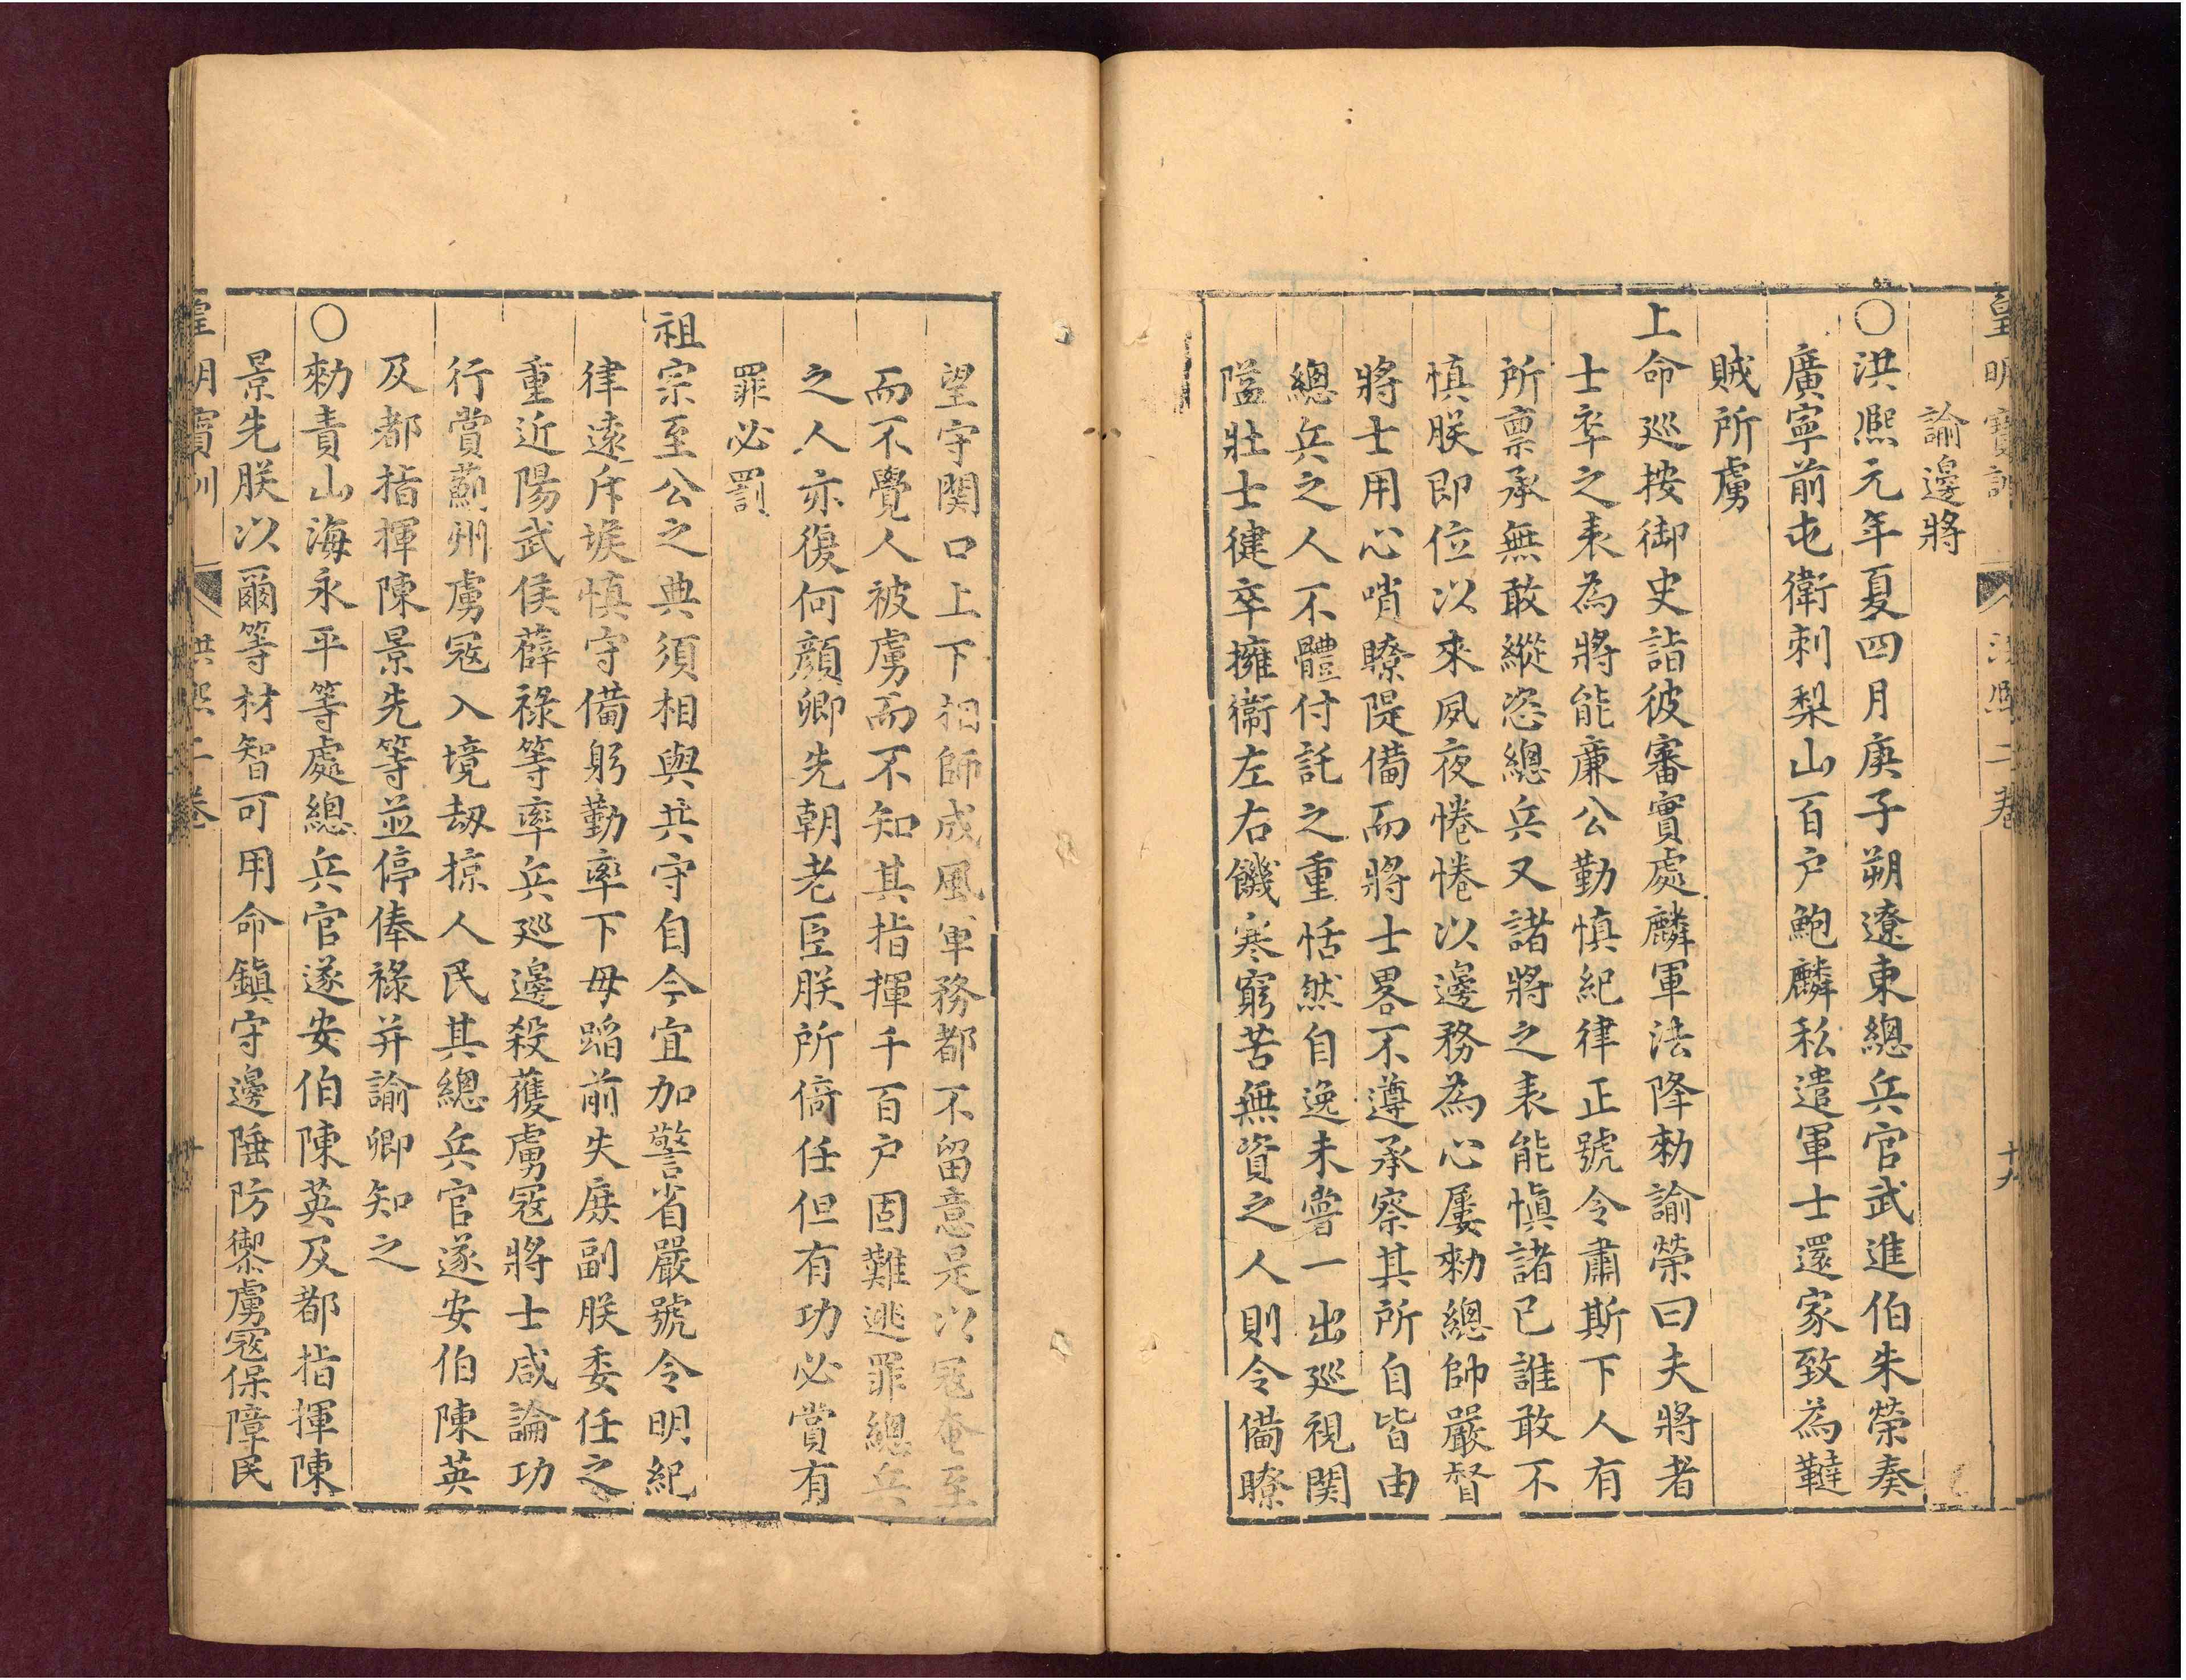 皇明寶訓 洪熙二卷 十九
諭邊將
○洪熙元年夏四月庚子朔遼東總兵官武進伯朱榮奏
廣寧前屯衛刺梨山百户鮑麟私遣軍士還家致為韃
賊所虜
上命廵按御史詣彼審實處麟軍法降勑諭榮曰夫將者
士卒之表為將能亷公勤慎紀律正號令肅斯下人有
所禀承無敢縱恣總兵又諸將之表能慎諸已誰敢不
慎朕即位以來夙夜惓惓以邊務為心屢勑總帥嚴督
將士用心哨瞭隄備而將士畧不遵承察其所自皆由
總兵之人不體付託之重恬然自逸未嘗一出廵視関
隘壯士健卒擁衞左右饑寒窮苦無資之人則令備瞭
望守関口上下相師成風軍務都不留意是以寇奄至
而不覺人被虜而不知其指揮千百户固難逃罪總兵
之人亦復何顔卿先朝老臣朕所倚任但有功必賞有
罪必罰
祖宗至公之典須相與共守自今宜加警省嚴號令明紀
律逺斥堠慎守備躬勤率下毋蹈前失庶副朕委任之
重近陽武侯薛祿等率兵廵邊殺獲虜寇將士咸論功
行賞薊州虜寇入境刼掠人民其總兵官遂安伯陳英
及都指揮陳景先等並停俸祿并諭卿知之
○勑責山海永平等處總兵官遂安伯陳英及都指揮陳
景先朕以爾等材智可用命鎮守邊陲防禦虜寇保障民
皇明寶訓 洪熙二卷